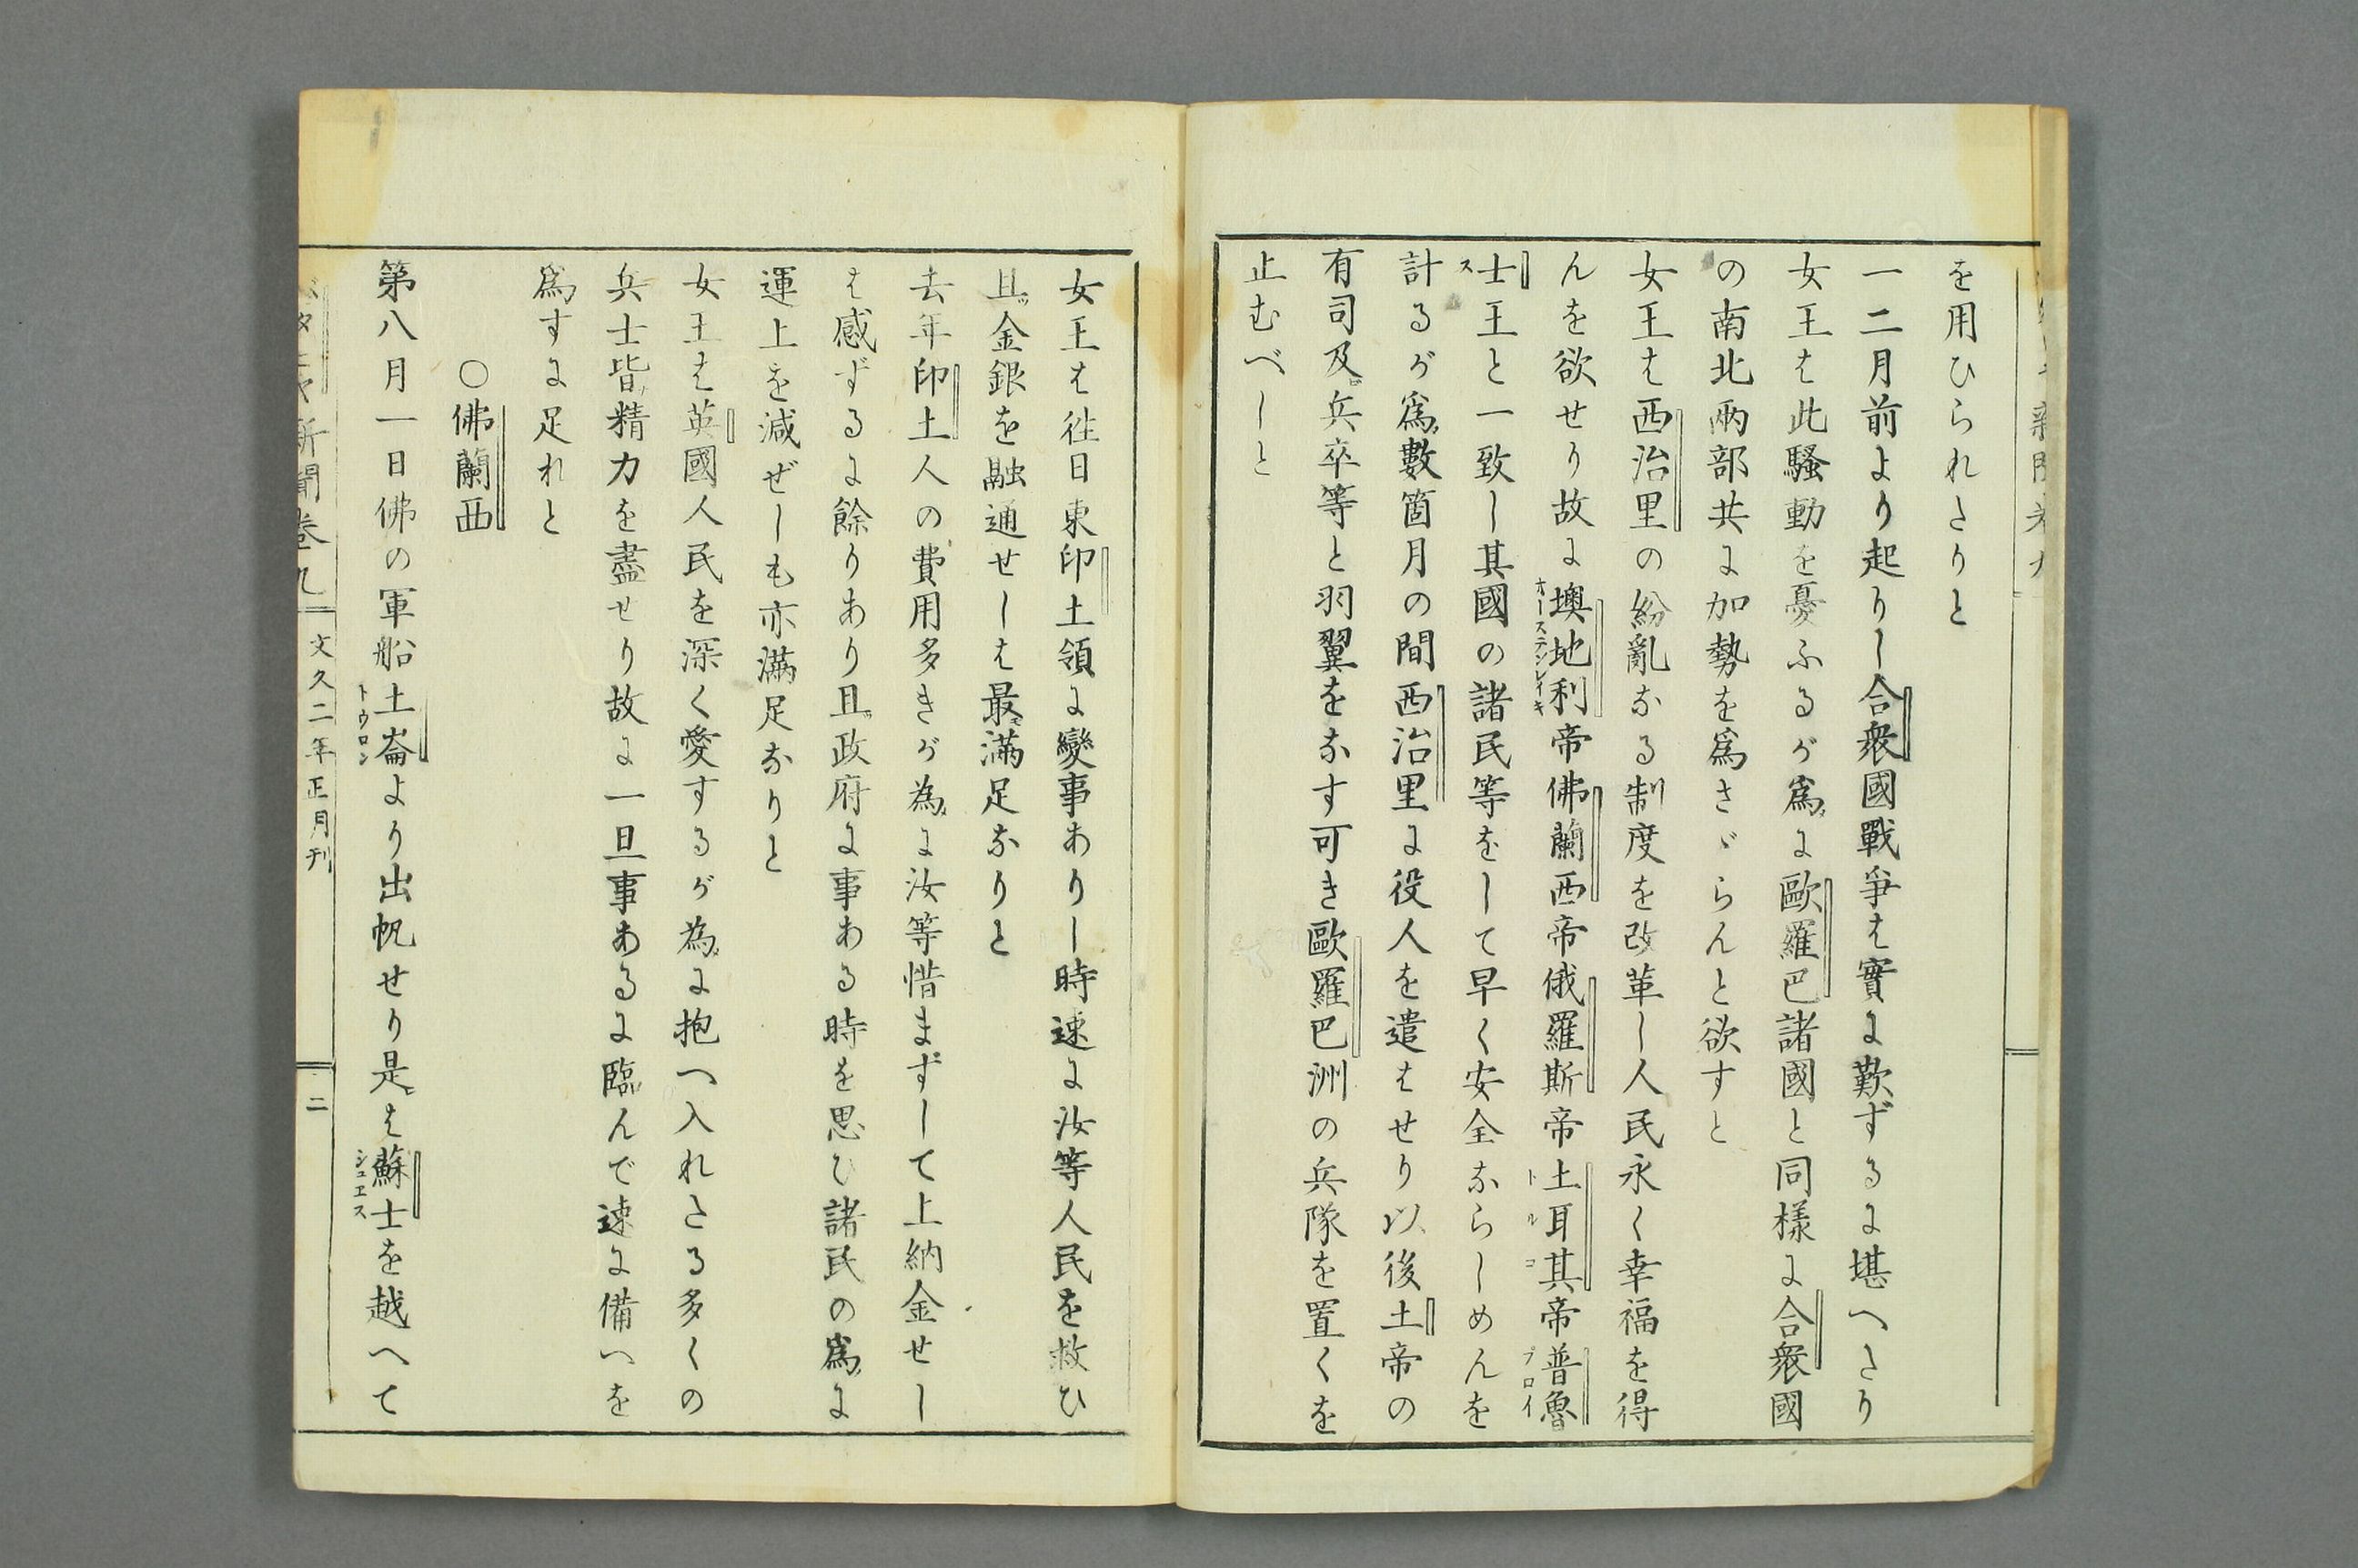 を用ひられたりと
一二月前より起りし合衆國戰爭は實に歎ずるに堪へたり
女王は此騷動を憂ふるが爲メに歐羅巴諸國と同樣に合衆國
の南北兩部共に加勢を爲さゞらんと欲すと
女王は西治里の紛亂なる制度を改革し人民永く幸福を得
んを欲せり故に墺地利帝佛蘭西帝俄羅斯帝土耳其帝普魯
オーステンレイキ
トルコ
プロイ
士王と一致し其國の諸民等をして早く安全ならしめんを
ス
計るが爲メ數箇月の間西治里に役人を遣はせり以後土帝の
有司及ビ兵卒等と羽翼をなす可き歐羅巴洲の兵隊を置くを
止むべしと
女王は往日東印土領に變事ありし時速に汝等人民を救ひ
且ツ金銀を融通せしは最モ滿足なりと
去年印土人の費用多きが為メに汝等惜まずして上納金せし
は感ずるに餘りあり且ツ政府に事ある時を思ひ諸民の爲メに
運上を減ぜしも亦滿足なりと
女王は英國人民を深く愛するが為メに抱へ入れたる多くの
兵士皆精力を盡せり故に一旦事あるに臨んで速に備へを
爲すに足れと
○佛蘭西
第八月一日佛の軍船土崙より出帆せり是レは蘇士を越へて
トウロン
シュエス
バタヒヤ新聞卷九
文久二年正月刊
二